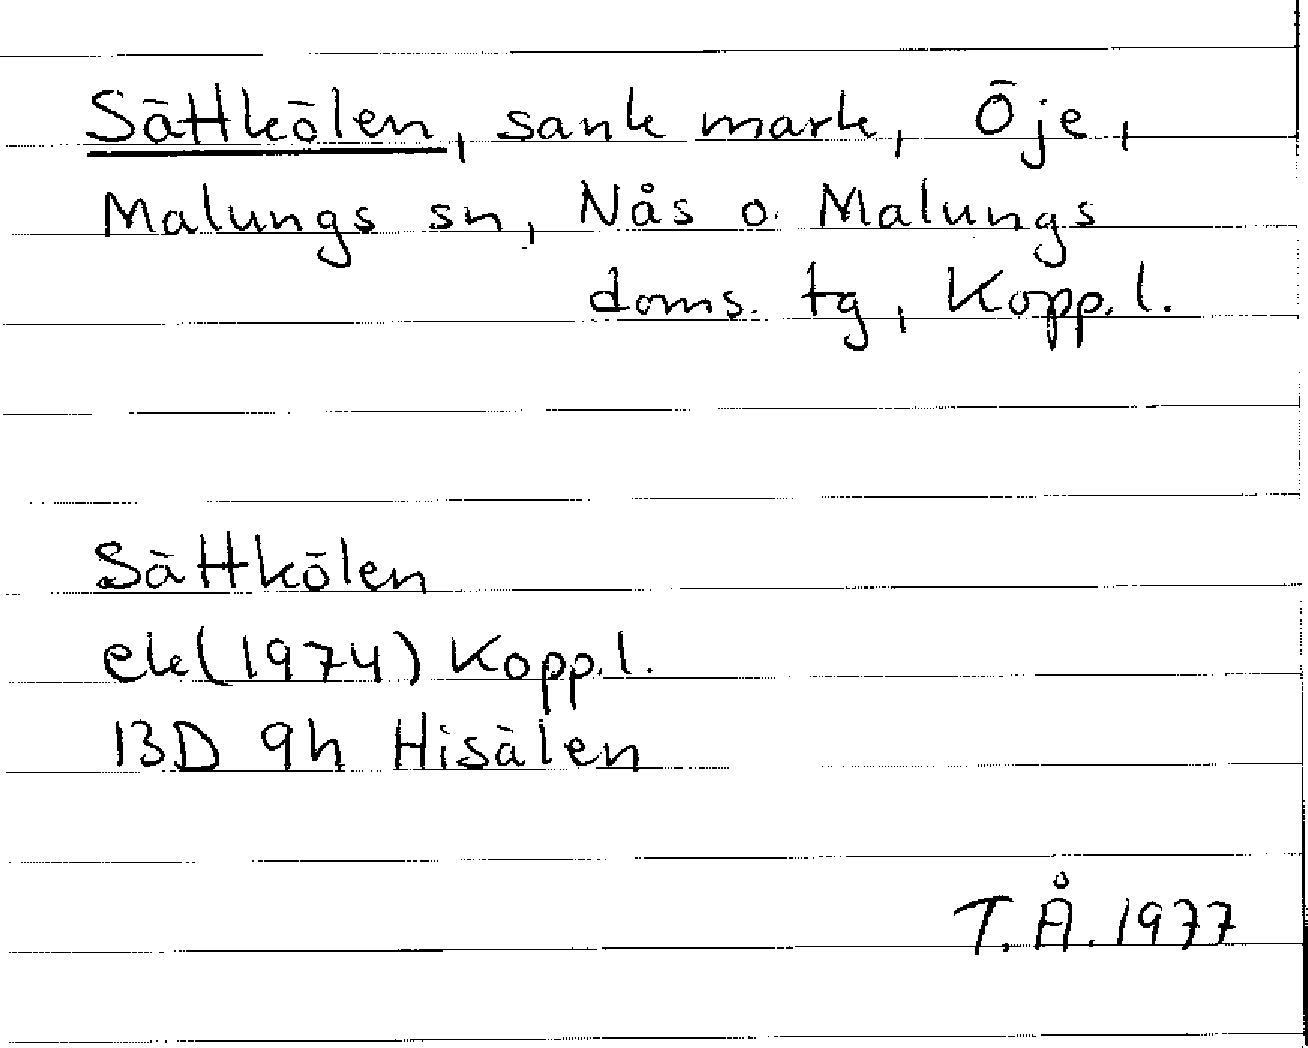 Sättkölen, sank mark, Öje,
Malungs sn, Nås o. Malungs
doms. tg, Kopp. l.
Sättkölen
ek (1974) Kopp. l.
13D 9h Hisälen
T. Å. 1977